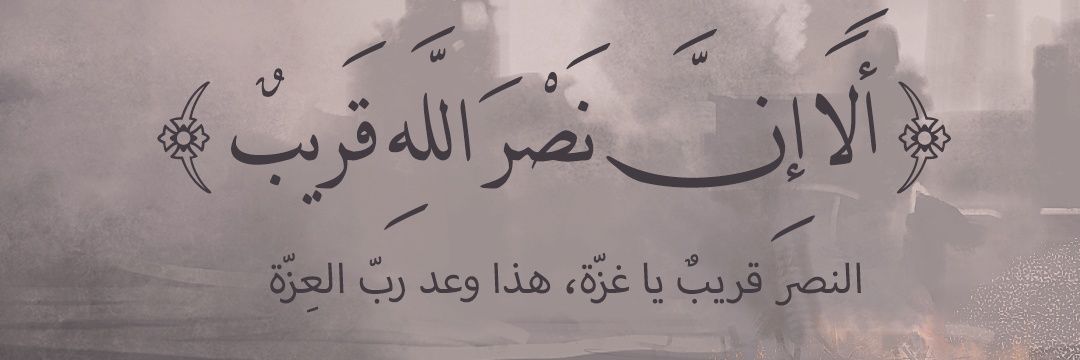 ﴿أَلَا إِنَّ نَصْرَ اللَّهِ قَرِيبٌ﴾
النصر قريبٌ يا غزّة، هذا وعد ربّ العِزّة